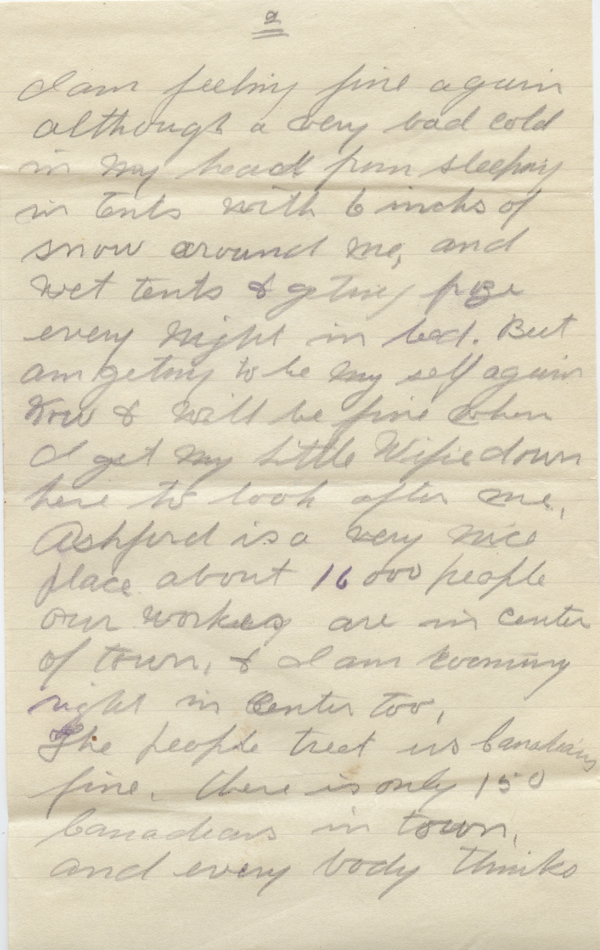 2
I am feeling fine again
although a very bad cold
in my head from sleeping
in tents with 6 inchs of
snow around me, and
wet tents & geting froze
every night in bed. But
am geting to be my self again
now & will be fine when
I get my little Wifie down
here to look after me,
Ashford is a very nice
place about 16000 people
our workes are in center
of town, & I am rooming
right in center too,
The people treat us Canadians
fine. there is only 150
Canadians in town,
and every body thinks